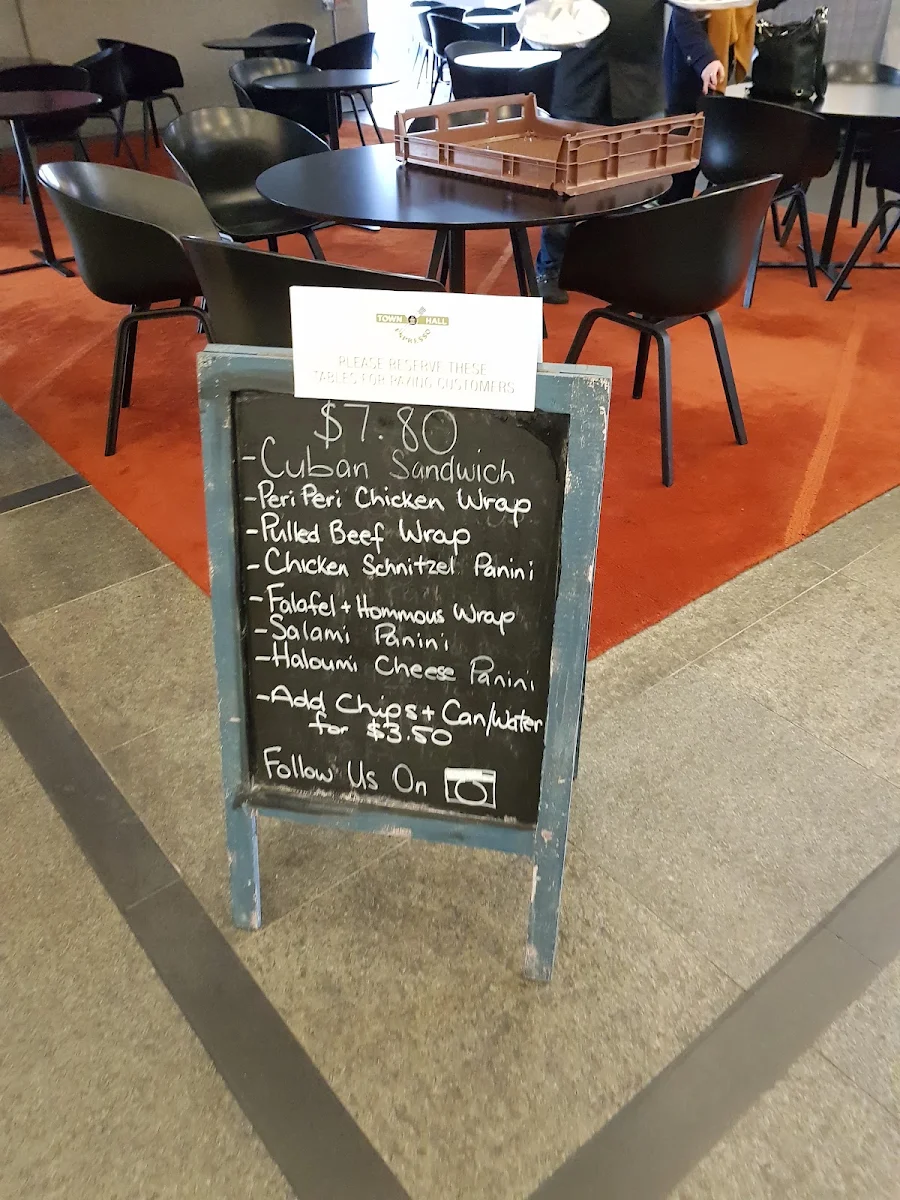 TOWN HALL
ESPRESSO
PLEASE RESERVE THESE
TABLES FOR PAYING CUSTOMERS
$7.80
-Cuban Sandwich
-Peri Peri Chicken Wrap
-Pulled Beef Wrap
-Chicken Schnitzel Panini
-Falafel + Hommous Wrap
-Salami Panini
-Haloumi Cheese Panini
-Add Chips + Can/Water
for $3.50
Follow Us On